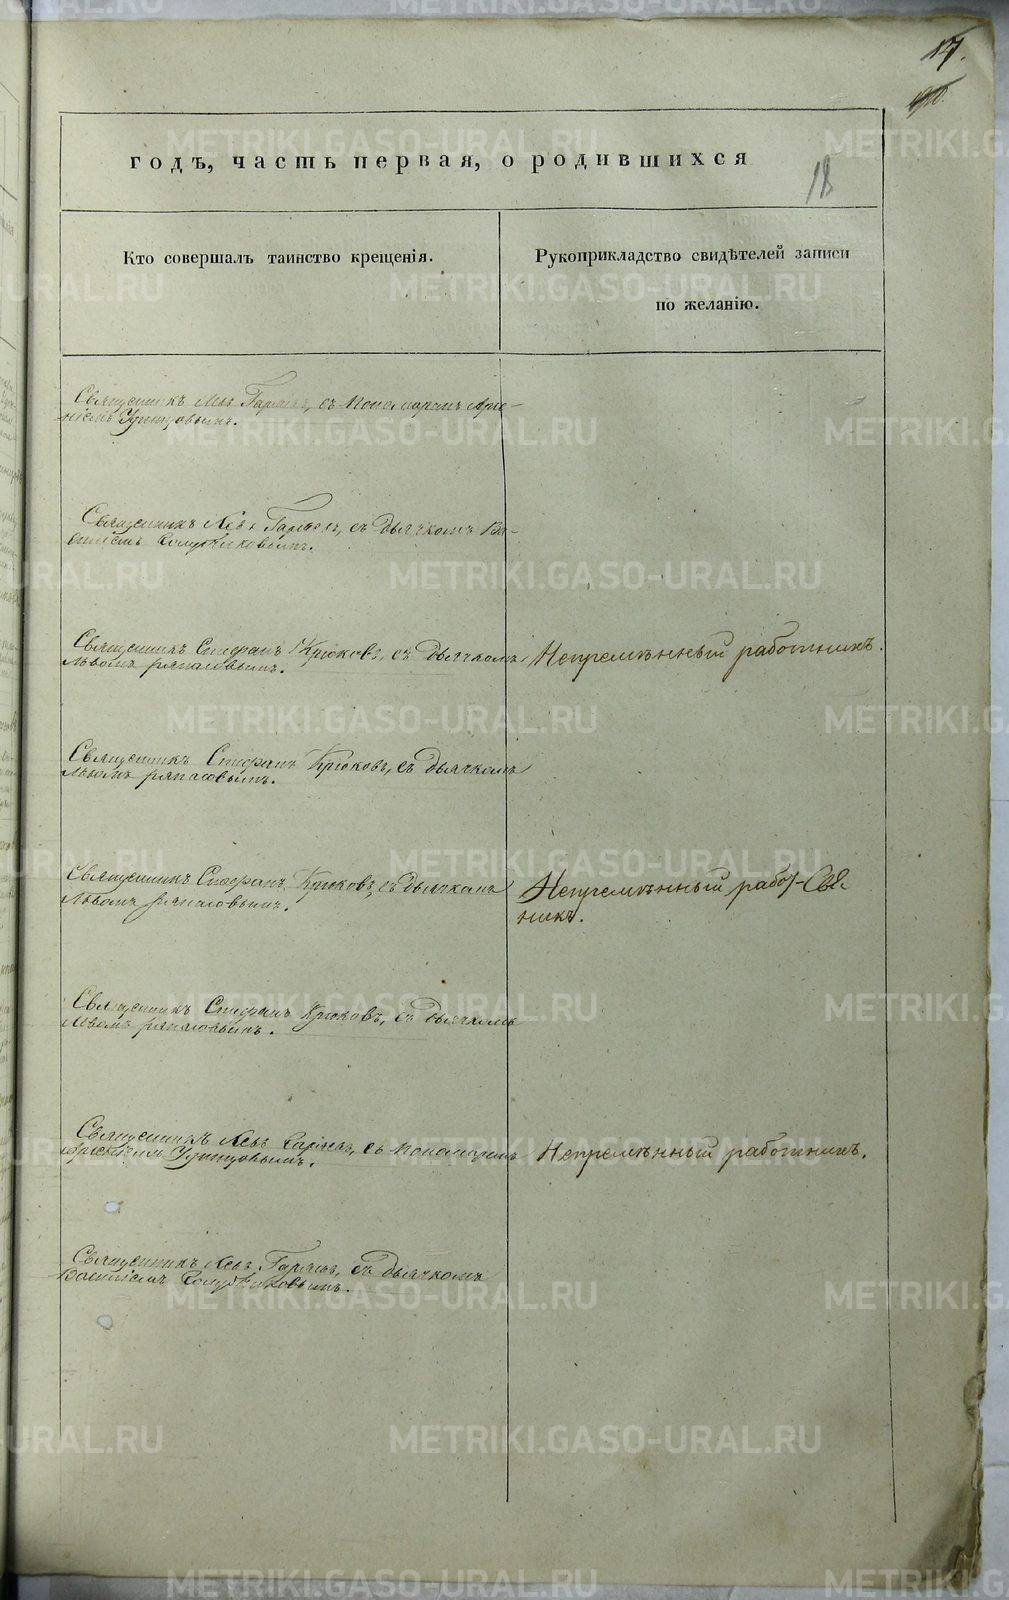 17.
18
годъ, часть первая, о родившихся
Кто совершалъ таинство крещенія.
Рукоприкладство свидѣтелей записи
по желанію.
Священникъ Левъ Гаряевъ, съ Пономаремъ Арсе-
ніемъ Удинцовымъ.
Священникъ Левъ Гаряевъ, съ Дьячкомъ Ва-
силіемъ
Священникъ Стефанъ Крюковъ, съ Дьячкомъ
Львомъ ряпасовымъ.
Непремѣнный работникъ.
Священникъ Стефанъ Крюковъ, съ Дьячкомъ
Львомъ ряпасовымъ.
Священникъ Стефанъ Крюковъ, съ Дьячкомъ
Львомъ ряпасовымъ.
Непремѣнный работ-
никъ.
Священникъ Стефанъ Крюковъ, съ Дьячкомъ
Львомъ ряпасовымъ.
Священникъ Левъ Гаряевъ, съ Пономаремъ
Арсеніемъ Удинцовымъ.
Непремѣнный работникъ.
Священникъ Левъ Гаряевъ, съ Дьячкомъ
Василіемъ
METRIKI.GASO-URAL.RU